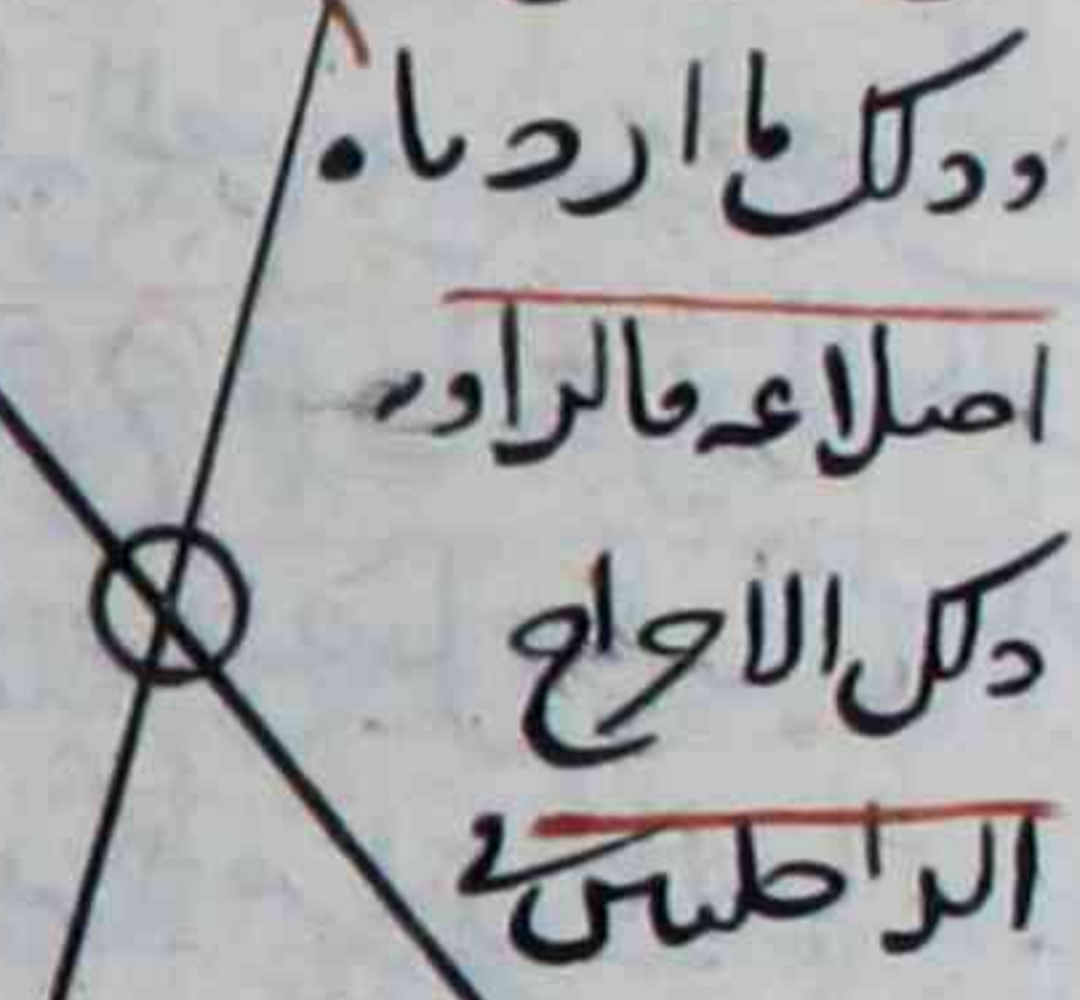 وذلك ما اردنا.
اضلاعه فالزاوية
ذلك الاخراج
الداخلتين